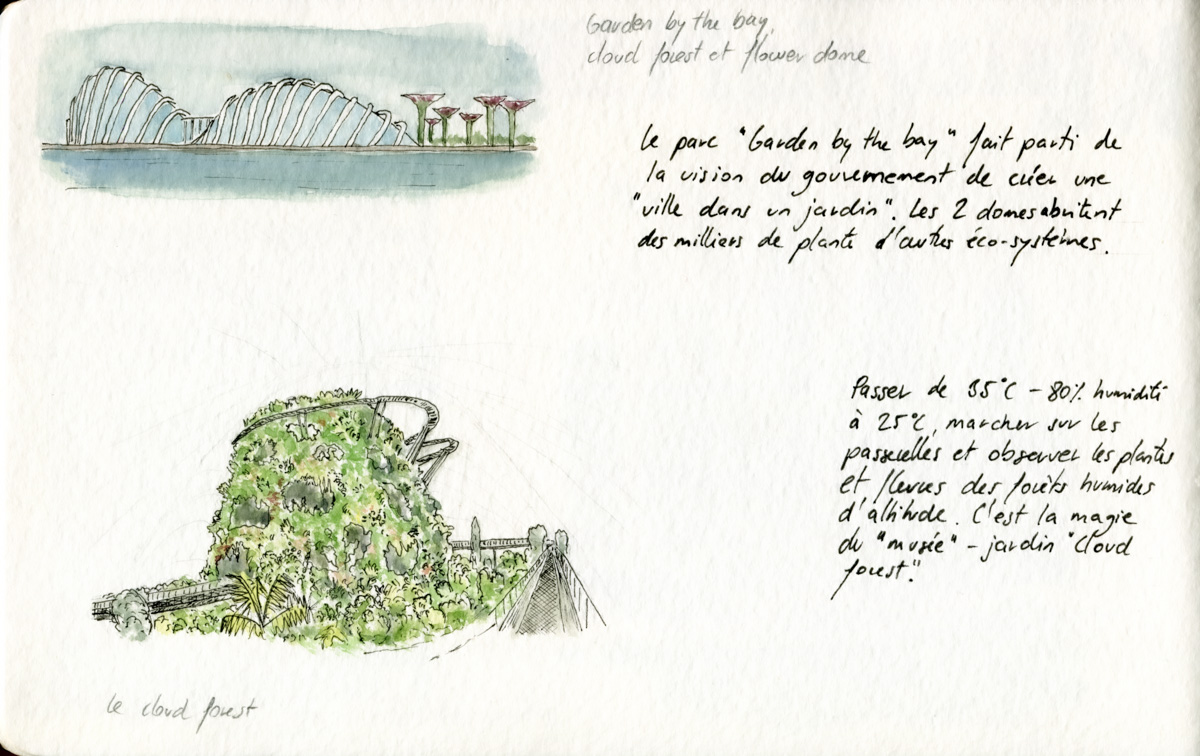 Garden by the bay,
cloud forest et flower dome
Le parc "Garden by the bay" fait parti de
la vision du gouvernement de créer une
"ville dans un jardin". Les 2 domes abritent
des milliers de plante d'autres éco-systèmes.
Passer de 35°C - 80% humidité
à 25°C, marcher sur les
passerelles et observer les plantes
et fleurs des forêts humides
d'altitude. C'est la magie
du "musée" - jardin "Cloud
forest".
Le cloud forest